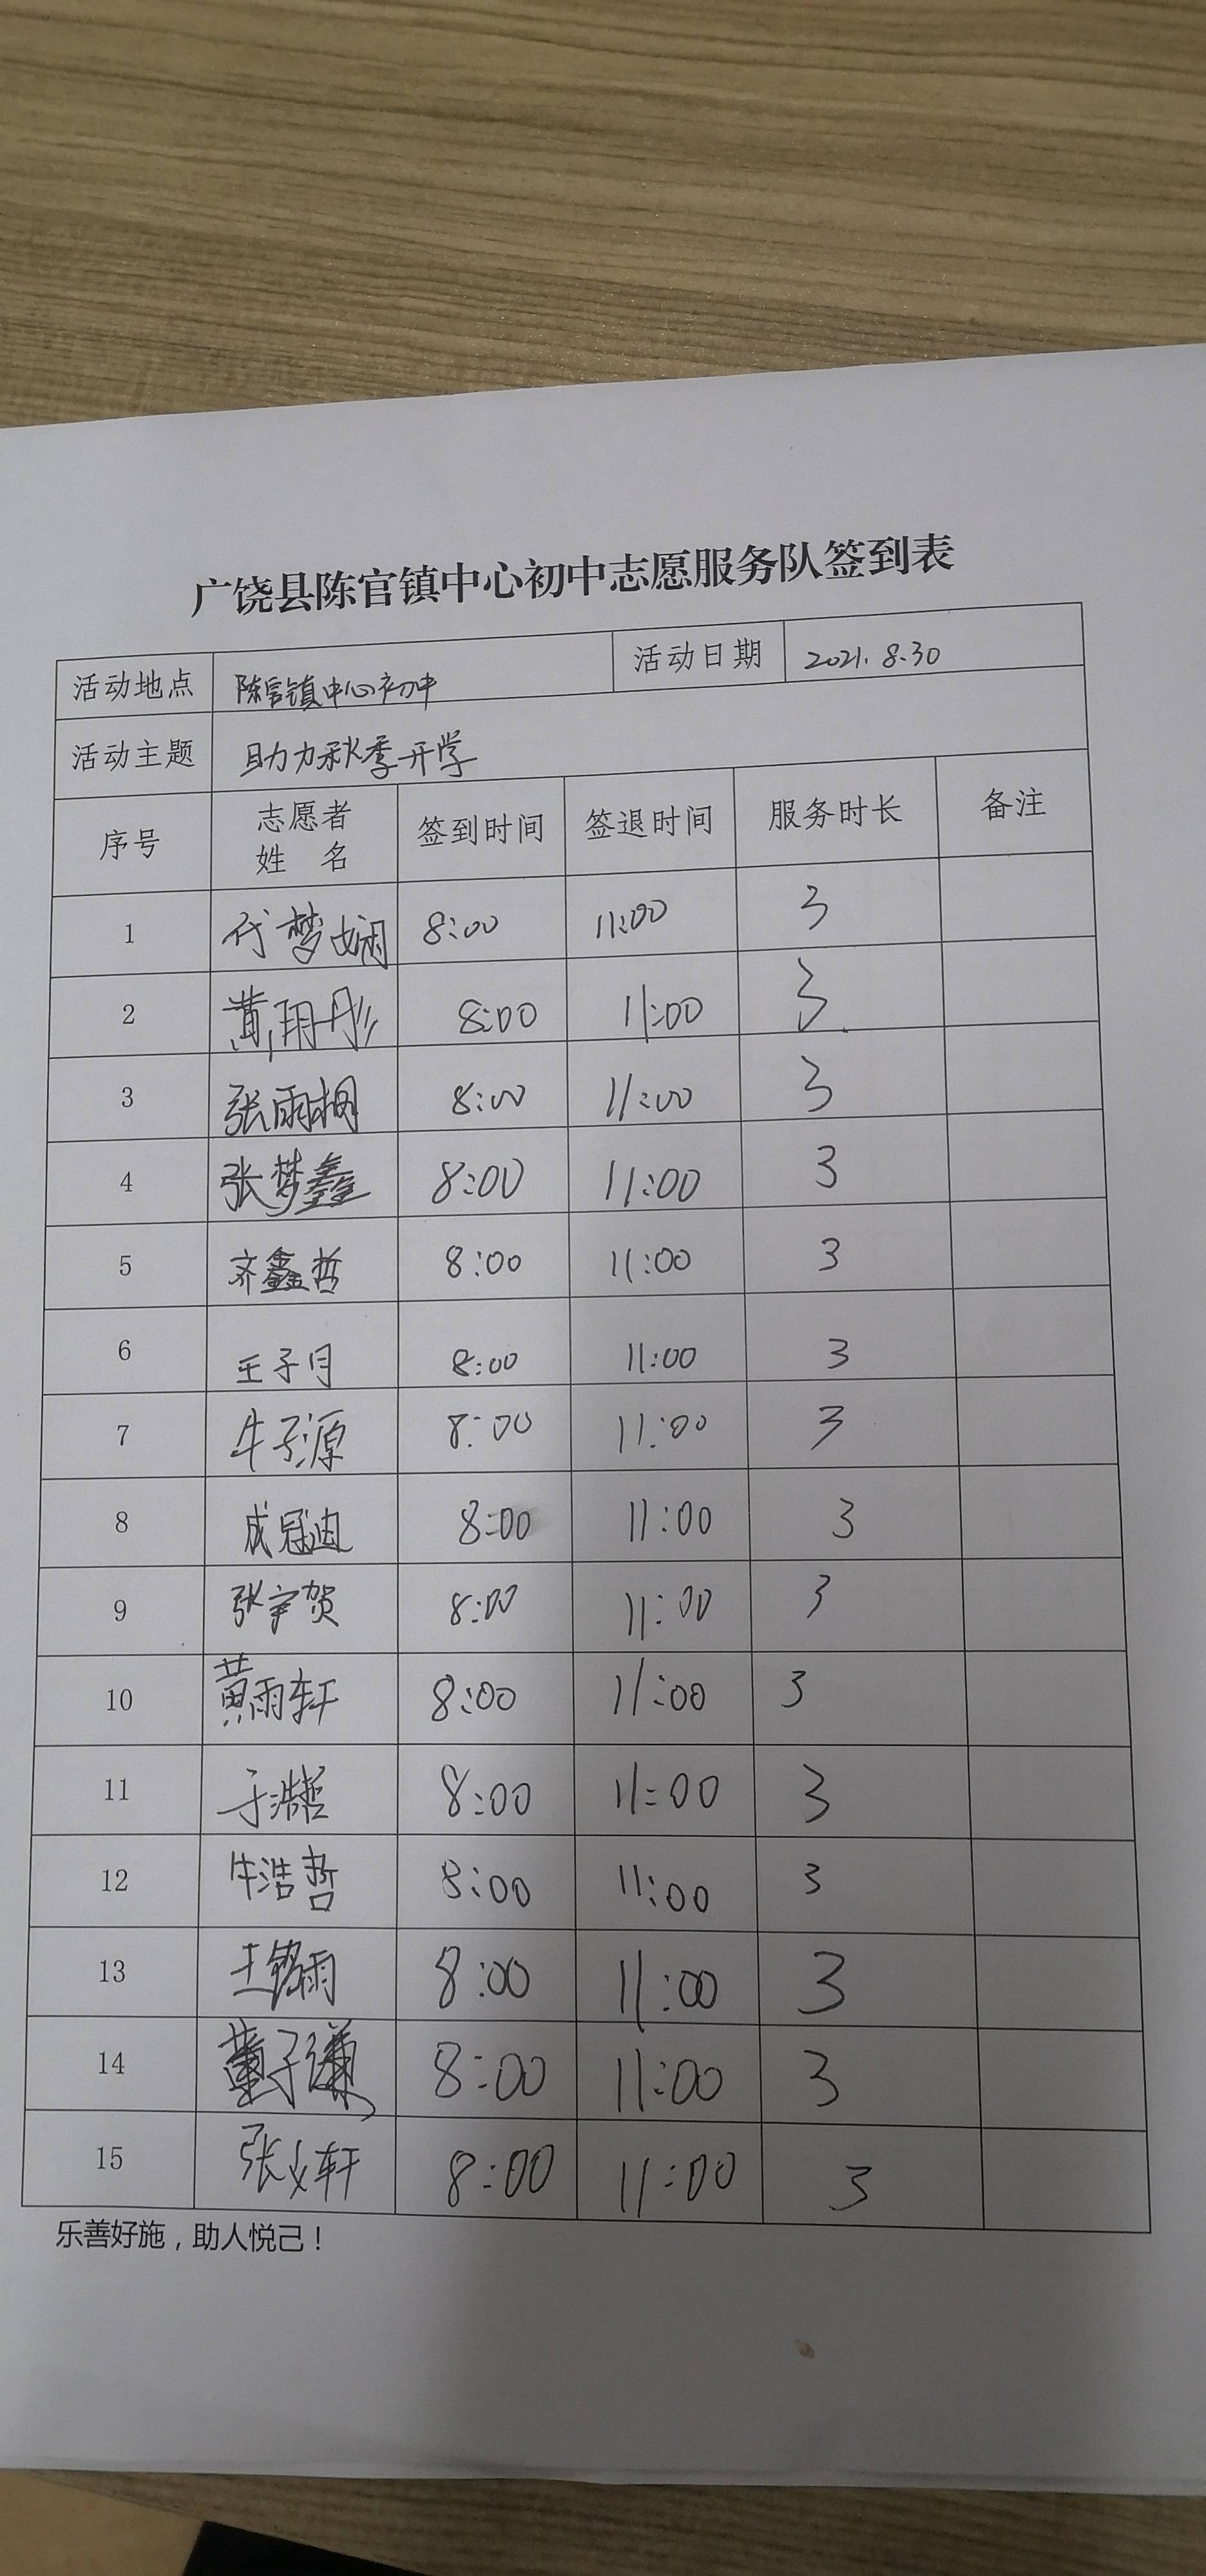 广饶县陈官镇中心初中志愿服务队签到表
活动地点 陈官镇中心初中 活动日期 2021.8.30
活动主题 助力秋季开学
序号 志愿者姓 名 签到时间 签退时间 服务时长 备注
1 代梦娴 8:00 11:00 3
2 黄玥彤 8:00 11:00 3
3 张雨桐 8:00 11:00 3
4 张梦鑫 8:00 11:00 3
5 齐鑫哲 8:00 11:00 3
6 王子月 8:00 11:00 3
7 牛子源 8:00 11:00 3
8 成冠迪 8:00 11:00 3
9 张宇贺 8:00 11:00 3
10 黄雨轩 8:00 11:00 3
11 于浩哲 8:00 11:00 3
12 牛浩哲 8:00 11:00 3
13 王铭雨 8:00 11:00 3
14 董子谦 8:00 11:00 3
15 张文轩 8:00 11:00 3
乐善好施，助人悦己！